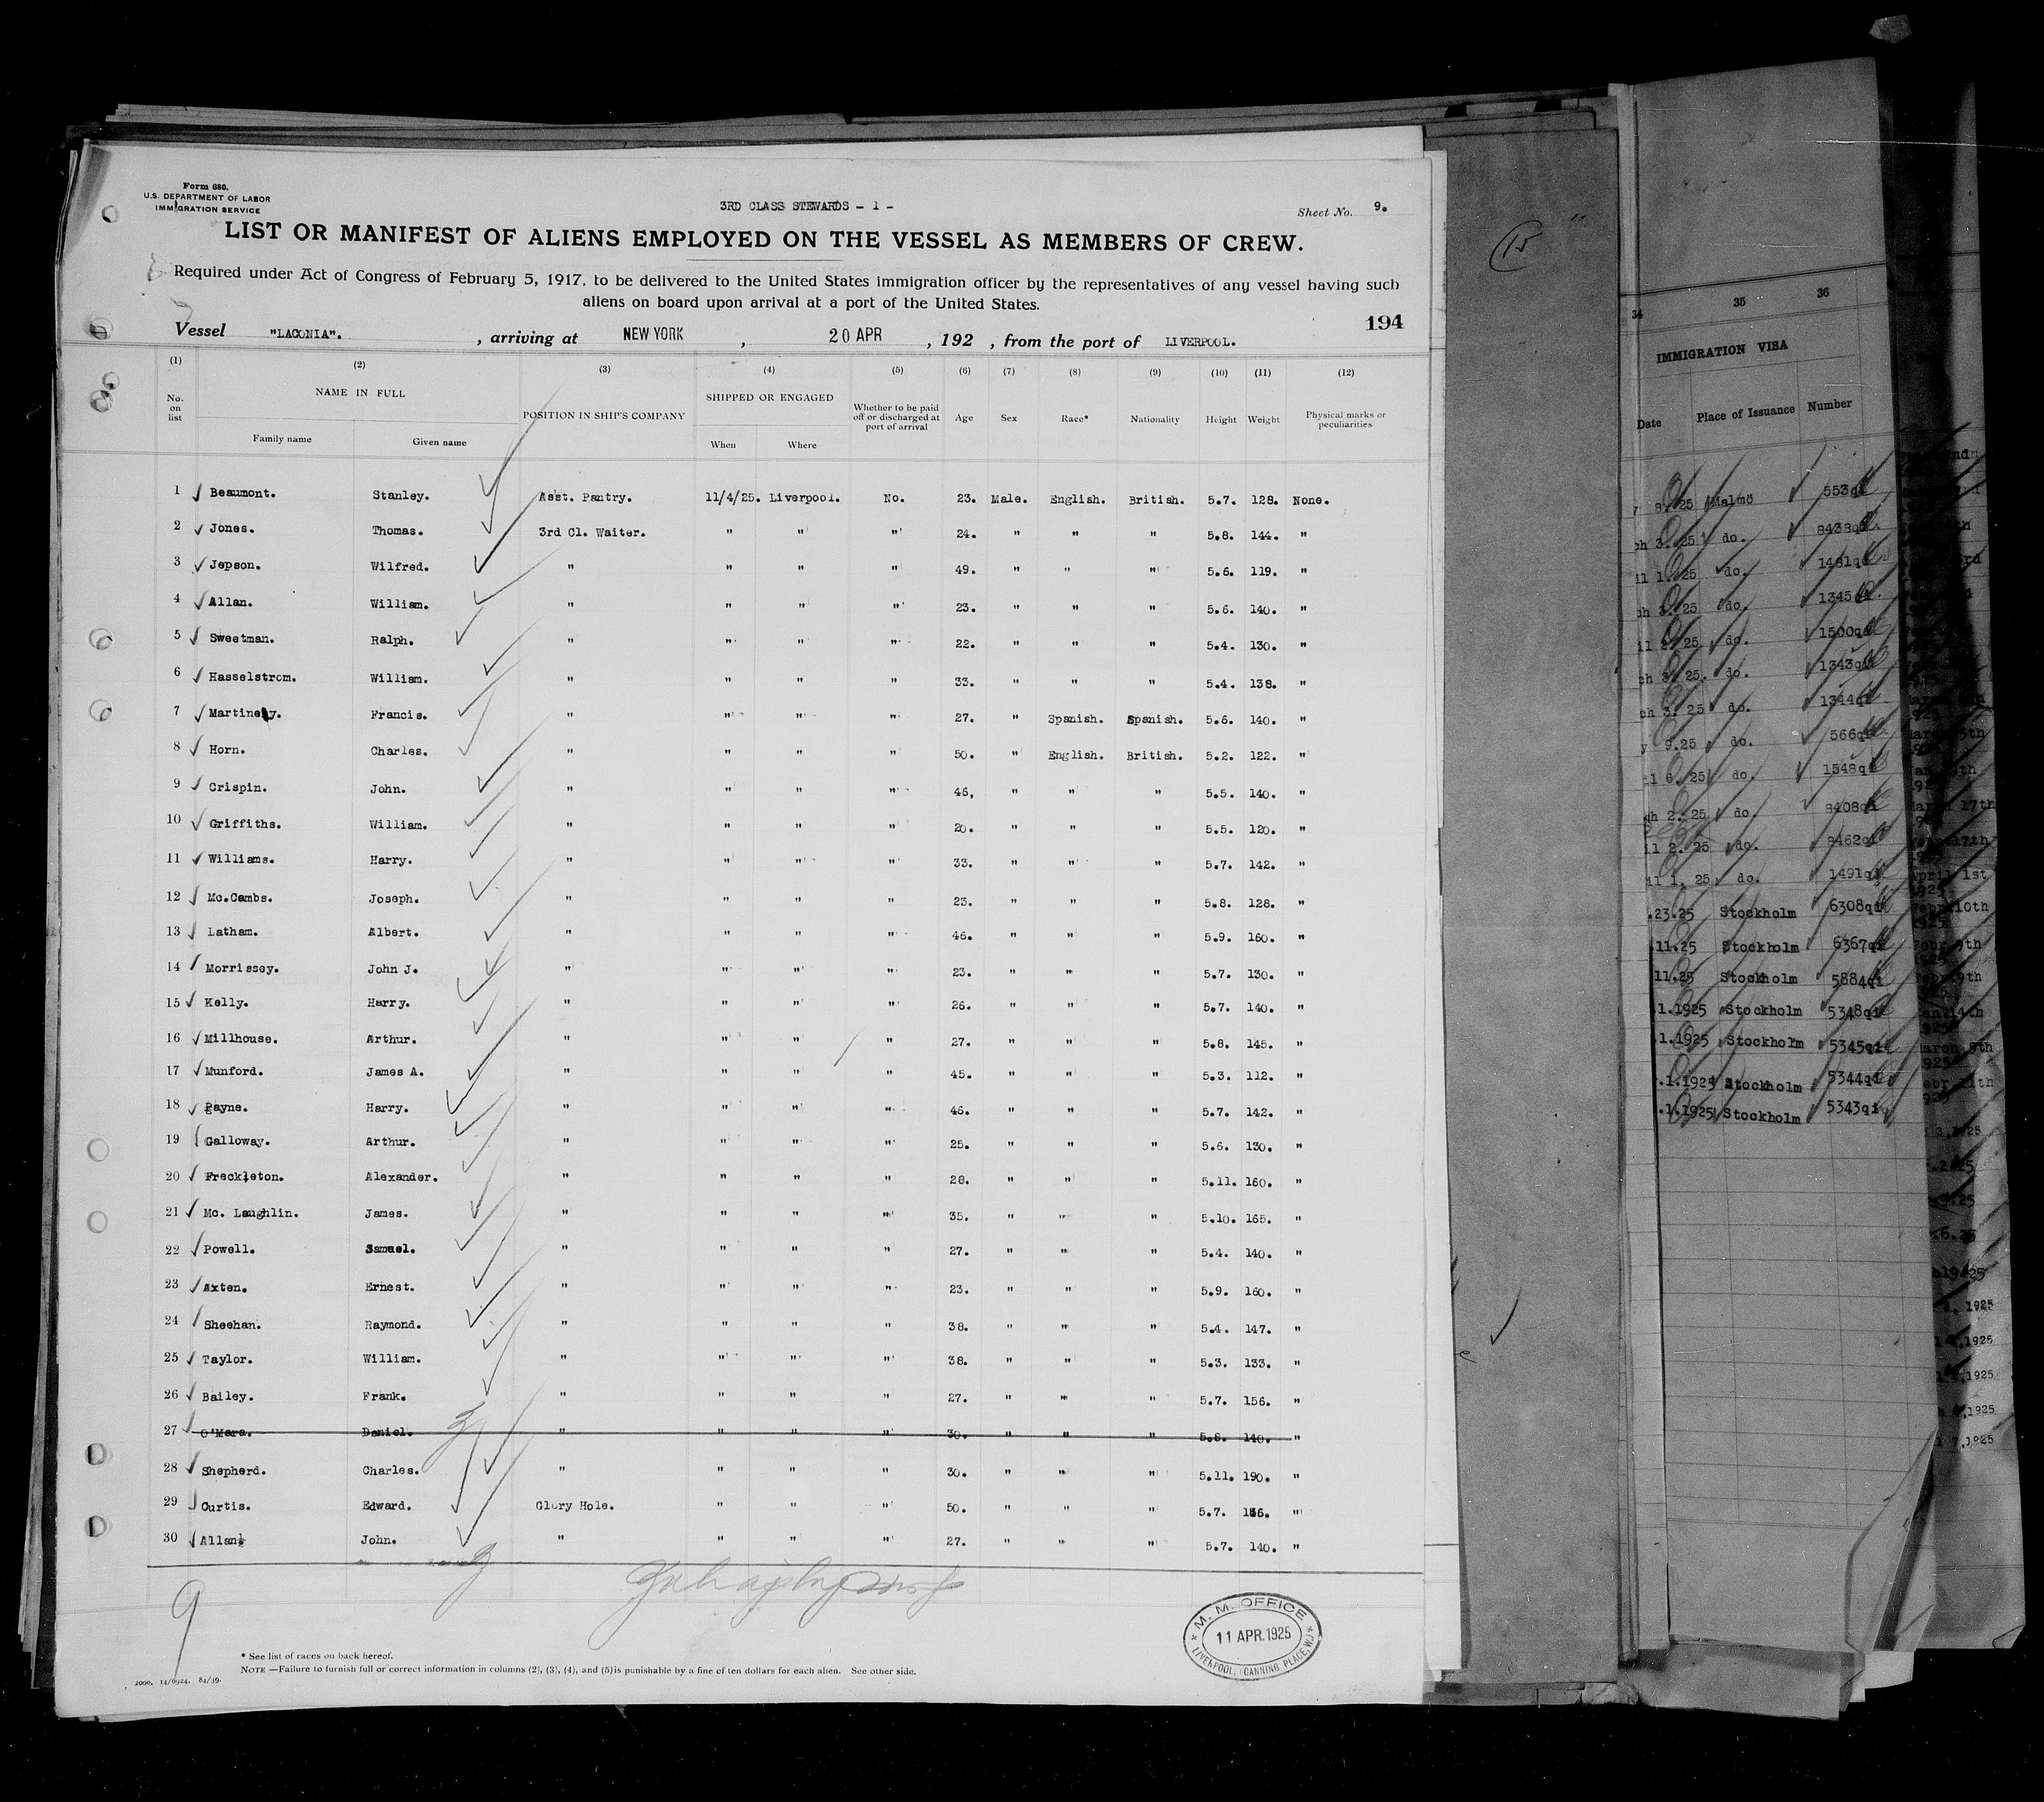 Form 680.
U.S. DEPARTMENT OF LABOR
IMMIGRATION SERVICE
3RD CLASS STEWARDS - 1 -
Sheet No. 9.
LIST OR MANIFEST OF ALIENS EMPLOYED ON THE VESSEL AS MEMBERS OF CREW.
Required under Act of Congress of February 5, 1917, to be delivered to the United States immigration officer by the representatives of any vessel having such
aliens on board upon arrival at a port of the United States.
194
Vessel "LACONIA". , arriving at NEW YORK , 20 APR , 192 , from the port of LIVERPOOL.
(1) (2) (3) (4) (5) (6) (7) (8) (9) (10) (11) (12)
No. on list NAME IN FULL Family name Given name POSITION IN SHIP'S COMPANY SHIPPED OR ENGAGED When Where Whether to be paid off or discharged at port of arrival Age Sex Race* Nationality Height Weight Physical marks or peculiarities
1 Beaumont. Stanley. Asst. Pantry. 11/4/25. Liverpool. No. 23. Male. English. British. 5.7. 128. None.
2 Jones. Thomas. 3rd Cl. Waiter. " " " 24. " " " 5.8. 144. "
3 Jepson. Wilfred. " " " " 49. " " " 5.6. 119. "
4 Allan. William. " " " " 23. " " " 5.6. 140. "
5 Sweetman. Ralph. " " " " 22. " " " 5.4. 130. "
6 Hasselstrom. William. " " " " 33. " " " 5.4. 138. "
7 Francis. " " " " 27. " Spanish. Spanish. 5.6. 140. "
8 Horn. Charles. " " " " 50. " English. British. 5.2. 122. "
9 Crispin. John. " " " " 46, " " " 5.5. 140. "
10 Griffiths. William. " " " " 20. " " " 5.5. 120. "
11 Williams. Harry. " " " " 33. " " " 5.7. 142. "
12 Mc.Cambs. Joseph. " " " " 23. " " " 5.8. 128. "
13 Latham. Albert. " " " " 46. " " " 5.9. 160. "
14 Morrissey. John J. " " " " 23. " " " 5.7. 130. "
15 Kelly. Harry. " " " " 26. " " " 5.7. 140. "
16 Millhouse. Arthur. " " " " 27. " " " 5.8. 145. "
17 Munford. James A. " " " " 45. " " " 5.3. 112. "
18 Payne. Harry. " " " " 46. " " " 5.7. 142. "
19 Galloway. Arthur. " " " " 25. " " " 5.6. 130. "
20 Freckleton. Alexander. " " " " 28. " " " 5.11. 160. "
21 Mc. Laughlin. James. " " " " 35. " " " 5.10. 165. "
22 Powell. Samuel. " " " " 27. " " " 5.4. 140. "
23 Axten. Ernest. " " " " 23. " " " 5.9. 160. "
24 Sheehan. Raymond. " " " " 38. " " " 5.4. 147. "
25 Taylor. William. " " " " 38. " " " 5.3. 133. "
26 Bailey. Frank. " " " " 27. " " " 5.7. 156. "
27 O'Mara. Daniel. " " " " 30. " " " 5.8. 140. "
28 Shepherd. Charles. " " " " 30. " " " 5.11. 190. "
29 Curtis. Edward. Glory Hole. " " " 50. " " " 5.7. "
30 Allan. John. " " " " 27. " " " 5.7. 140. "
9
M. M. OFFICE
11 APR.1925
LIVERPOOL. (CANNING PLACE, W.)
* See list of races on back hereof.
NOTE—Failure to furnish full or correct information in columns (2), (3), (4), and (5) is punishable by a fine of ten dollars for each alien. See other side.
2000. 14/6924. 84/39.
15
34 35 36
IMMIGRATION VISA
Date Place of Issuance Number
8.25 Malmö 553qi
ch 3. 25 do. 8438qi
il 1. 25 do. 1481qi
ch 3. 25 do. 1345qi
il 2. 25 do. 1500qi
ch 3. 25. do. 1343qi
ch 3. 25 do. 1344qi
y 9.25 do. 566qi
il 6. 25 do. 1548qi
ch 2. 25 do. 8408qi
il 2. 25 do. 8462qi
il 1. 25 do. 1491qi
.23.25 Stockholm 6308qi
.11.25 Stockholm 6367qi
11.25 Stockholm 5884qi
.1.1925 Stockholm 5348qi
.1.1925 Stockholm 5345qi
.1.1925 Stockholm 5344qi
.1.1925 Stockholm 5343qi